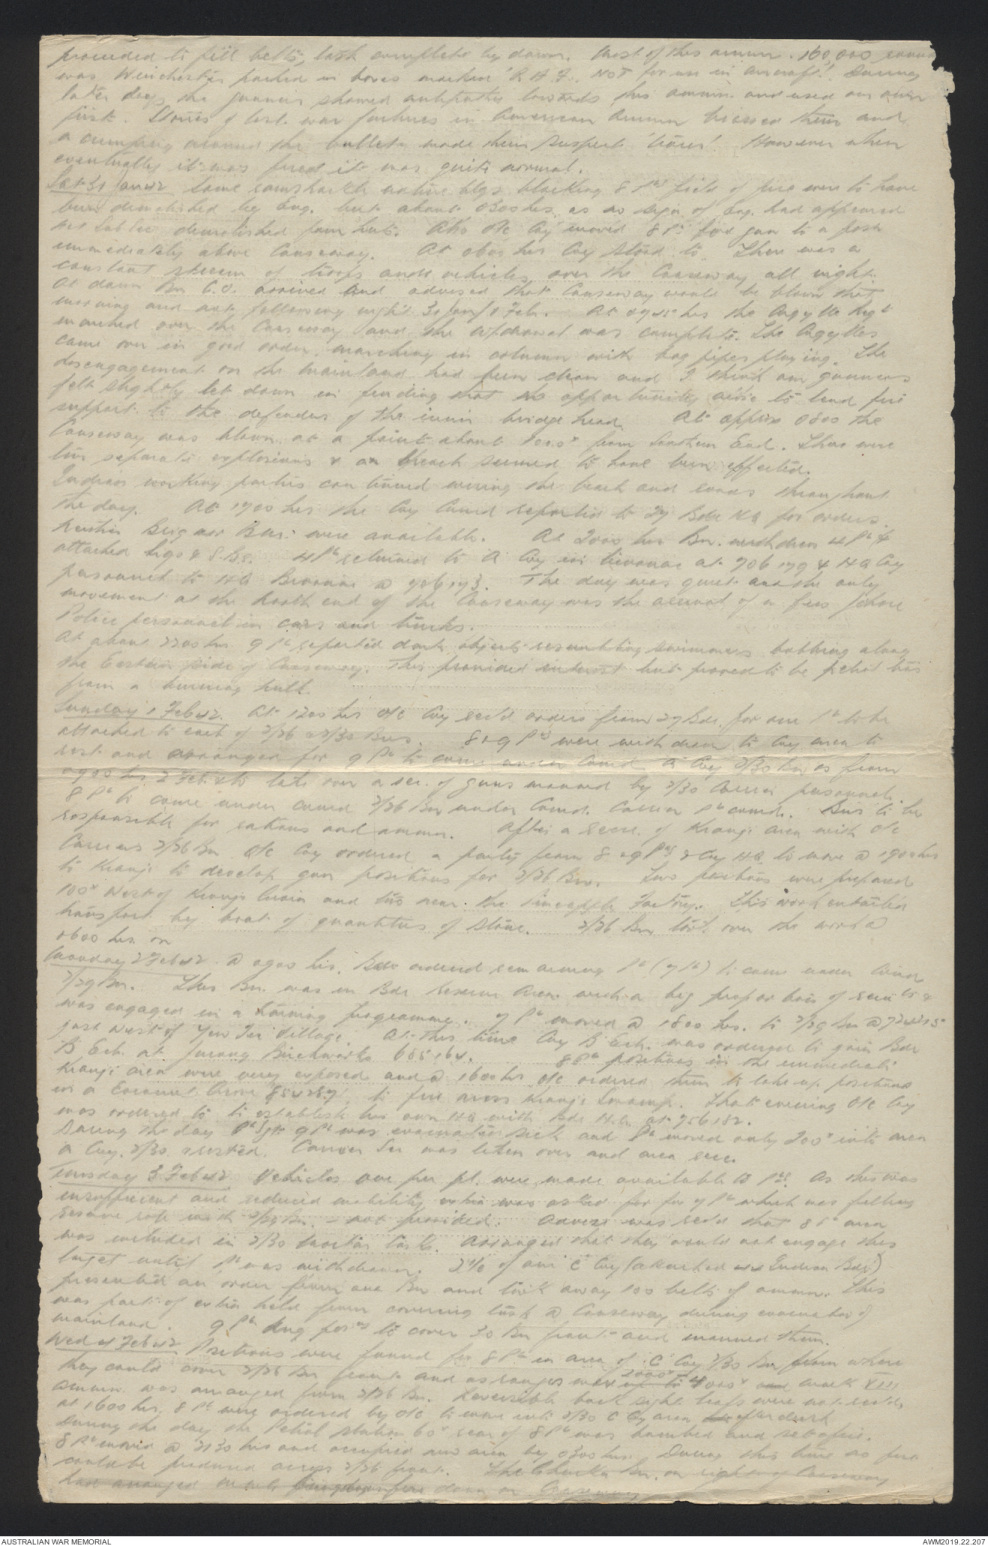 proceeded to fill belts, task complete by dawn. Most of this ammn. 160,000 rounds
was Winchester packed in boxes marked R.A.F. NOT for use in aircraft! During
later days the gunners showed antipathy towards this ammn. and used our own
first. Stories of last war failures in American Ammn and
a crimping around the bullets made them suspect However when
eventually it was fired it was quite normal.
Sat 31 Jan 42 Some ramshackle native bldgs blocking 8 Pl's field of fire were to have
been demolished by Eng. but about 0300 hrs as no sign of Eng. had appeared
demolished huts. Also O/C Coy moved 8 Pl gun to a posn
immediately above Causeway. At 0600 hrs Coy stood to. There was a
constant stream of troops and vehicles over the Causeway all night.
At dawn Bn C.O. arrived and advised that Causeway would be blown that
morning and not following night 31 Jan/1 Feb. At 0745 hrs the Argylls Regt
marched over the Causeway and the withdrawal was complete. The Argylls
came over in good order, marching in column with bag pipes playing. The
disengagement on the mainland had been clean and I think our gunners
felt slightly let down in finding that no opportunity arose to lend fire
support to the defenders of the inner bridge head. At approx 0800 the
Causeway was blown at a point about from Southern End. There were
two separate explosions & a breach seemed to have been effected.
Indian working parties continued wiring the beach and throughout
the day. At 1700 hrs the Coy Comd reported to 27 Bde HQ for orders.
Neither Brig nor B.M. were available. At 2000 hrs Bn. withdrew 4 Pl &
attached sigs & S.Bs. 4 Pl returned to A Coy in bivouac at 706179 & HQ Coy
personnel to HQ Bivouac @ 706173. The day was quiet and the only
movement at the North end of the Causeway was the arrival of a few Johore
Police personnel in cars and trucks.
At about 2200 hrs 9 Pl reported dark objects resembling swimmers bobbing along
the Eastern side of Causeway. This provided interest but proved to be petrol tins
from a burning hulk.
Sunday 1 Feb 42. At 1200 hrs O/C Coy rec'd orders from 27 Bde for one Pl to be
attached to each of 2/26 & 2/30 Bns. 8 & 9 Pls were withdrawn to Coy area to
rest and arranged for 9 Pl to come under Comd. A Coy 2/30 Bn as from
0900 hrs 2 Feb & to take over a sec. of guns manned by 2/30 Carrier personnel.
8 Pl to come under comd 2/26 Bn under Comd. Carrier Pl comd. Bns to be
responsible for rations and ammn. After a recce. of Kranji area with O/C
Carriers 2/26 Bn O/C Coy ordered a party from 8 & 9 Pls & Coy HQ to move @ 1900 hrs
to Kranji to develop gun positions for 2/26 Bn. Two positions were prepared
100x West of Kranji and two near the Pineapple Factory. This work entailed
transport by boat of quantities of stone. 2/26 Bn took over the work @
0600 hrs on
Monday 2 Feb 42. @ 0900 hrs. Bde ordered remaining Pl (7 Pl) to come under Comd
2/29 Bn. This Bn. was in Bde Reserve Area with a big proportion of recruits &
was engaged in a training programme. 7 Pl moved @ 1800 hrs. to 2/29 Bn @
just West of Yew Tee Village. At this time Coy B Ech. was ordered to join Bde
B Ech. at Jurong Brickworks 665164. 8 Pl positions in the immediate
Kranji area were very exposed and @ 1600 hrs O/C ordered them to take up positions
in a Coconut Grove to fire across Kranji Swamp. That evening O/C Coy
was ordered to establish his own HQ with Bde HQ at 756182.
During the day 9 Pl was evacuated sick and Pl moved only 200x into area
A Coy. 2/30 rested. Carrier Sec was taken over and area recce.
Tuesday 3 Feb 42 Vehicles one per pl. were made available to Pls. As this was
insufficient and reduced mobility extra was asked for for 7 Pl which was filling
reserve role with 2/29 Bn. - not provided. Advice was rec'd that 8 Pl area
was included in 2/30 Mortar task. Arranged that they would not engage this
target until Pl was withdrawn. 2 i/c of our 'C' Coy (attached Indian Bde)
presented an order from our Bn and took away 100 belts of ammn. This
was part of extra held from covering task @ Causeway during evacuation of
mainland. 9 Pl dug posns to cover 30 Bn front and manned them.
Wed 4 Feb 42 Positions were found for 8 Pl in area of 'C' Coy 2/30 Bn from where
they could cover 2/26 Bn front and as ranges were up to 4000x mark VIII
ammn. was arranged from 2/26 Bn. Reversible back sight leafs were not avail.
At 1600 hrs, 8 Pl were ordered by O/C to move into 2/30 C Coy area after dark
During the day the Petrol Station 60x rear of 8 Pl was bombed and set afire.
8 Pl moved @ 2130 hrs and occupied new area by 0300 hrs. During this time no fire
could be produced across 2/26 front. The Ghurka Bn. on right of Causeway
had arranged fire down on Causeway
AUSTRALIAN WAR MEMORIAL
AWM2019.22.207